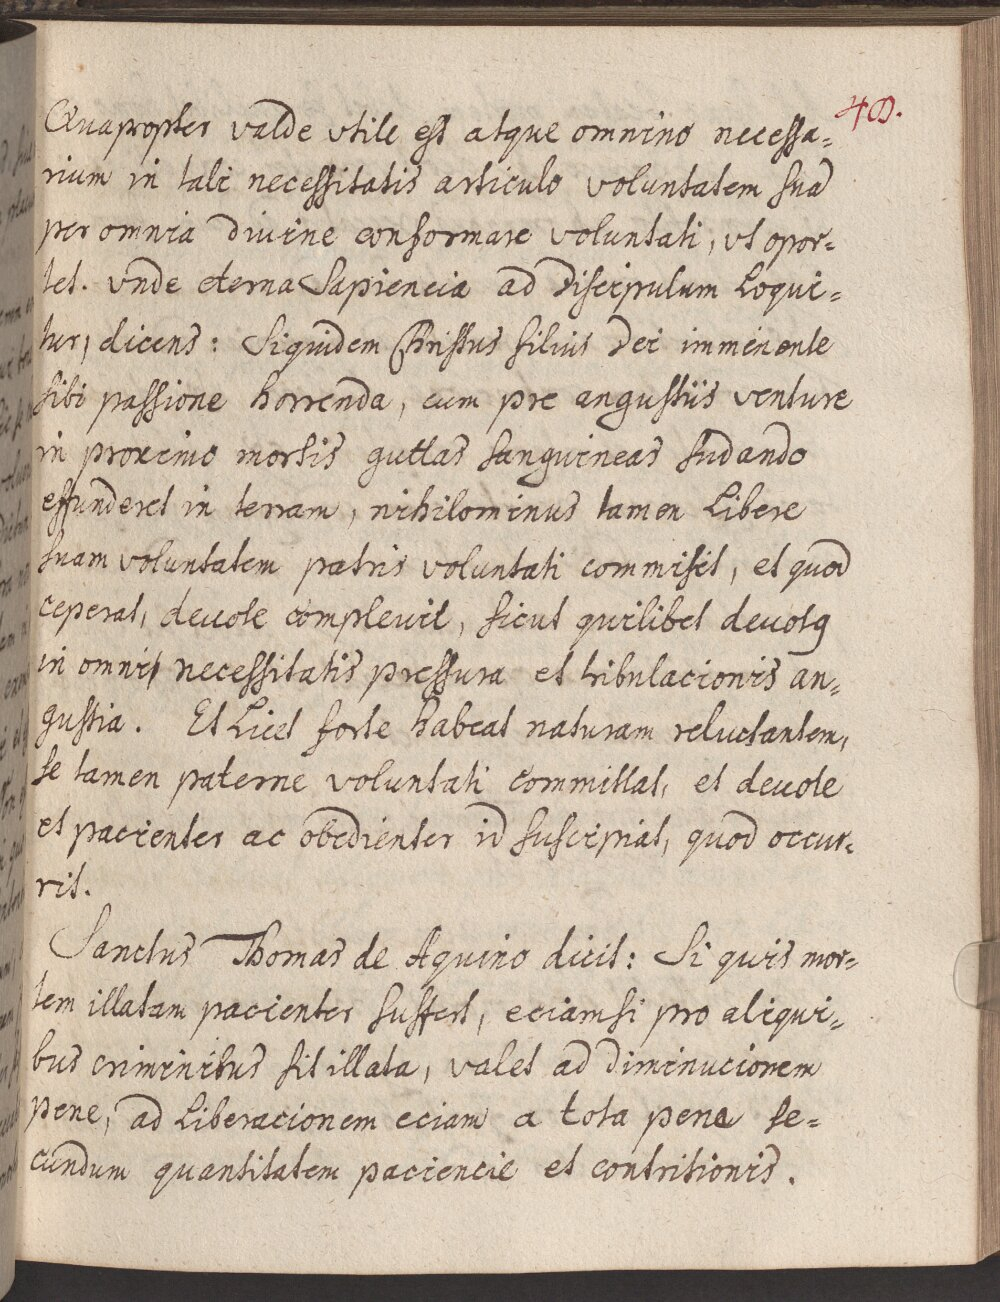 40.
Quapropter valde vtile est atque omnino necessa=
rium in tali necessitatis articulo voluntatem suā
per omnia diuine conformare voluntati, vt opor=
tet. vnde eterna Sapiencia ad discipulum Loqui=
tur, dicens: Siquidem Christus filius Dei imminente
sibi passione horrenda, cum pre angustiis venture
in proximo mortis guttas sanguineas sudando
effunderet in terram, nihilominus tamen Libere
suam voluntatem patris voluntati commisit, et quod
ceperat, deuote compleuit, sicut quilibet deuotꝯ
in omni necessitatis pressura et tribulacionis an=
gustia. Et Licet forte habeat naturam reluctantem,
se tamen paterne voluntati committat, et deuote
et pacienter ac obedienter id suscipiat, quod occur=
rit.
Sanctus Thomas de Aquino dicit: Si quis mor=
tem illatam pacienter suffert, eciamsi pro aliqui=
bus criminibus sit illata, valet ad diminucionem
pene, ad Liberacionem eciam a tota pena se=
cundum quantitatem paciencie et contritionis.